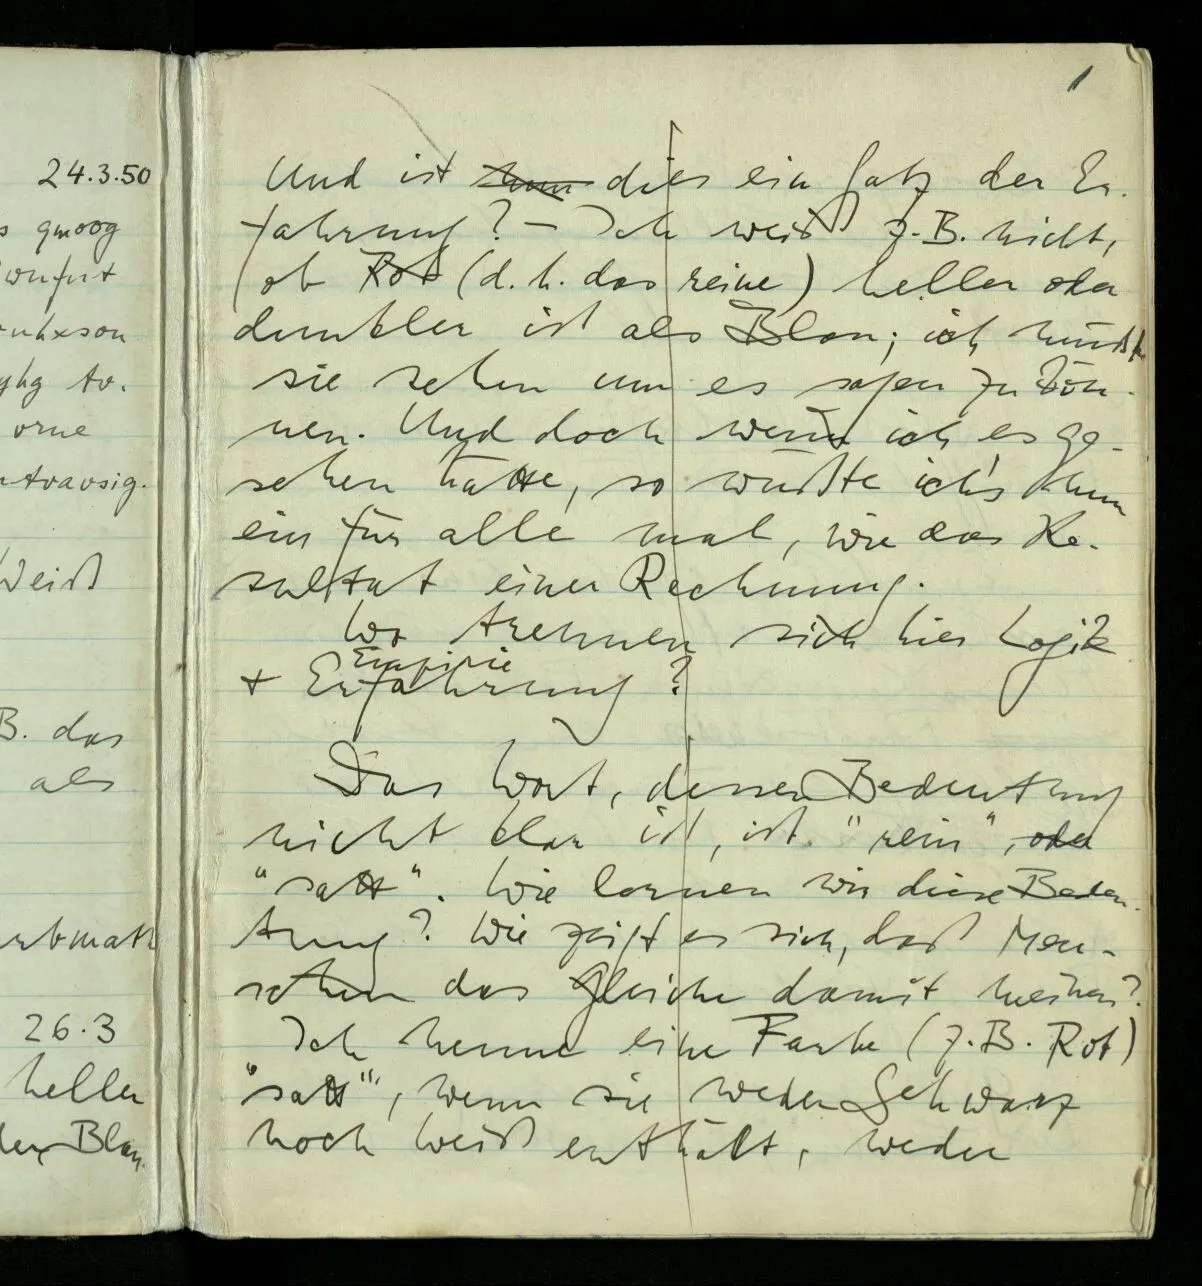 24.3.50
qmoog
orne
Weiß
B. das
als
26.3
heller
Blau.
1
Und ist nun dies ein Satz der Er-
fahrung? – Ich weiß z.B. nicht,
ob Rot (d.h. das reine) heller oder
dunkler ist als Blau; ich müßte
sie sehen um es sagen zu kön-
nen. Und doch wenn ich es ge-
sehen hätte, so wüßte ich's nun
ein für alle mal, wie das Re-
sultat einer Rechnung.
Wo trennen sich hier Logik
Empirie
+ Erfahrung?
Das Wort, dessen Bedeutung
nicht klar ist, ist "rein", oder
"satt". Wie lernen wir diese Bedeu-
tung? Wie zeigt es sich, daß Men-
schen das Gleiche damit meinen?
Ich nenne eine Farbe (z.B. Rot)
"satt", wenn sie weder Schwarz
noch Weiß enthält, weder